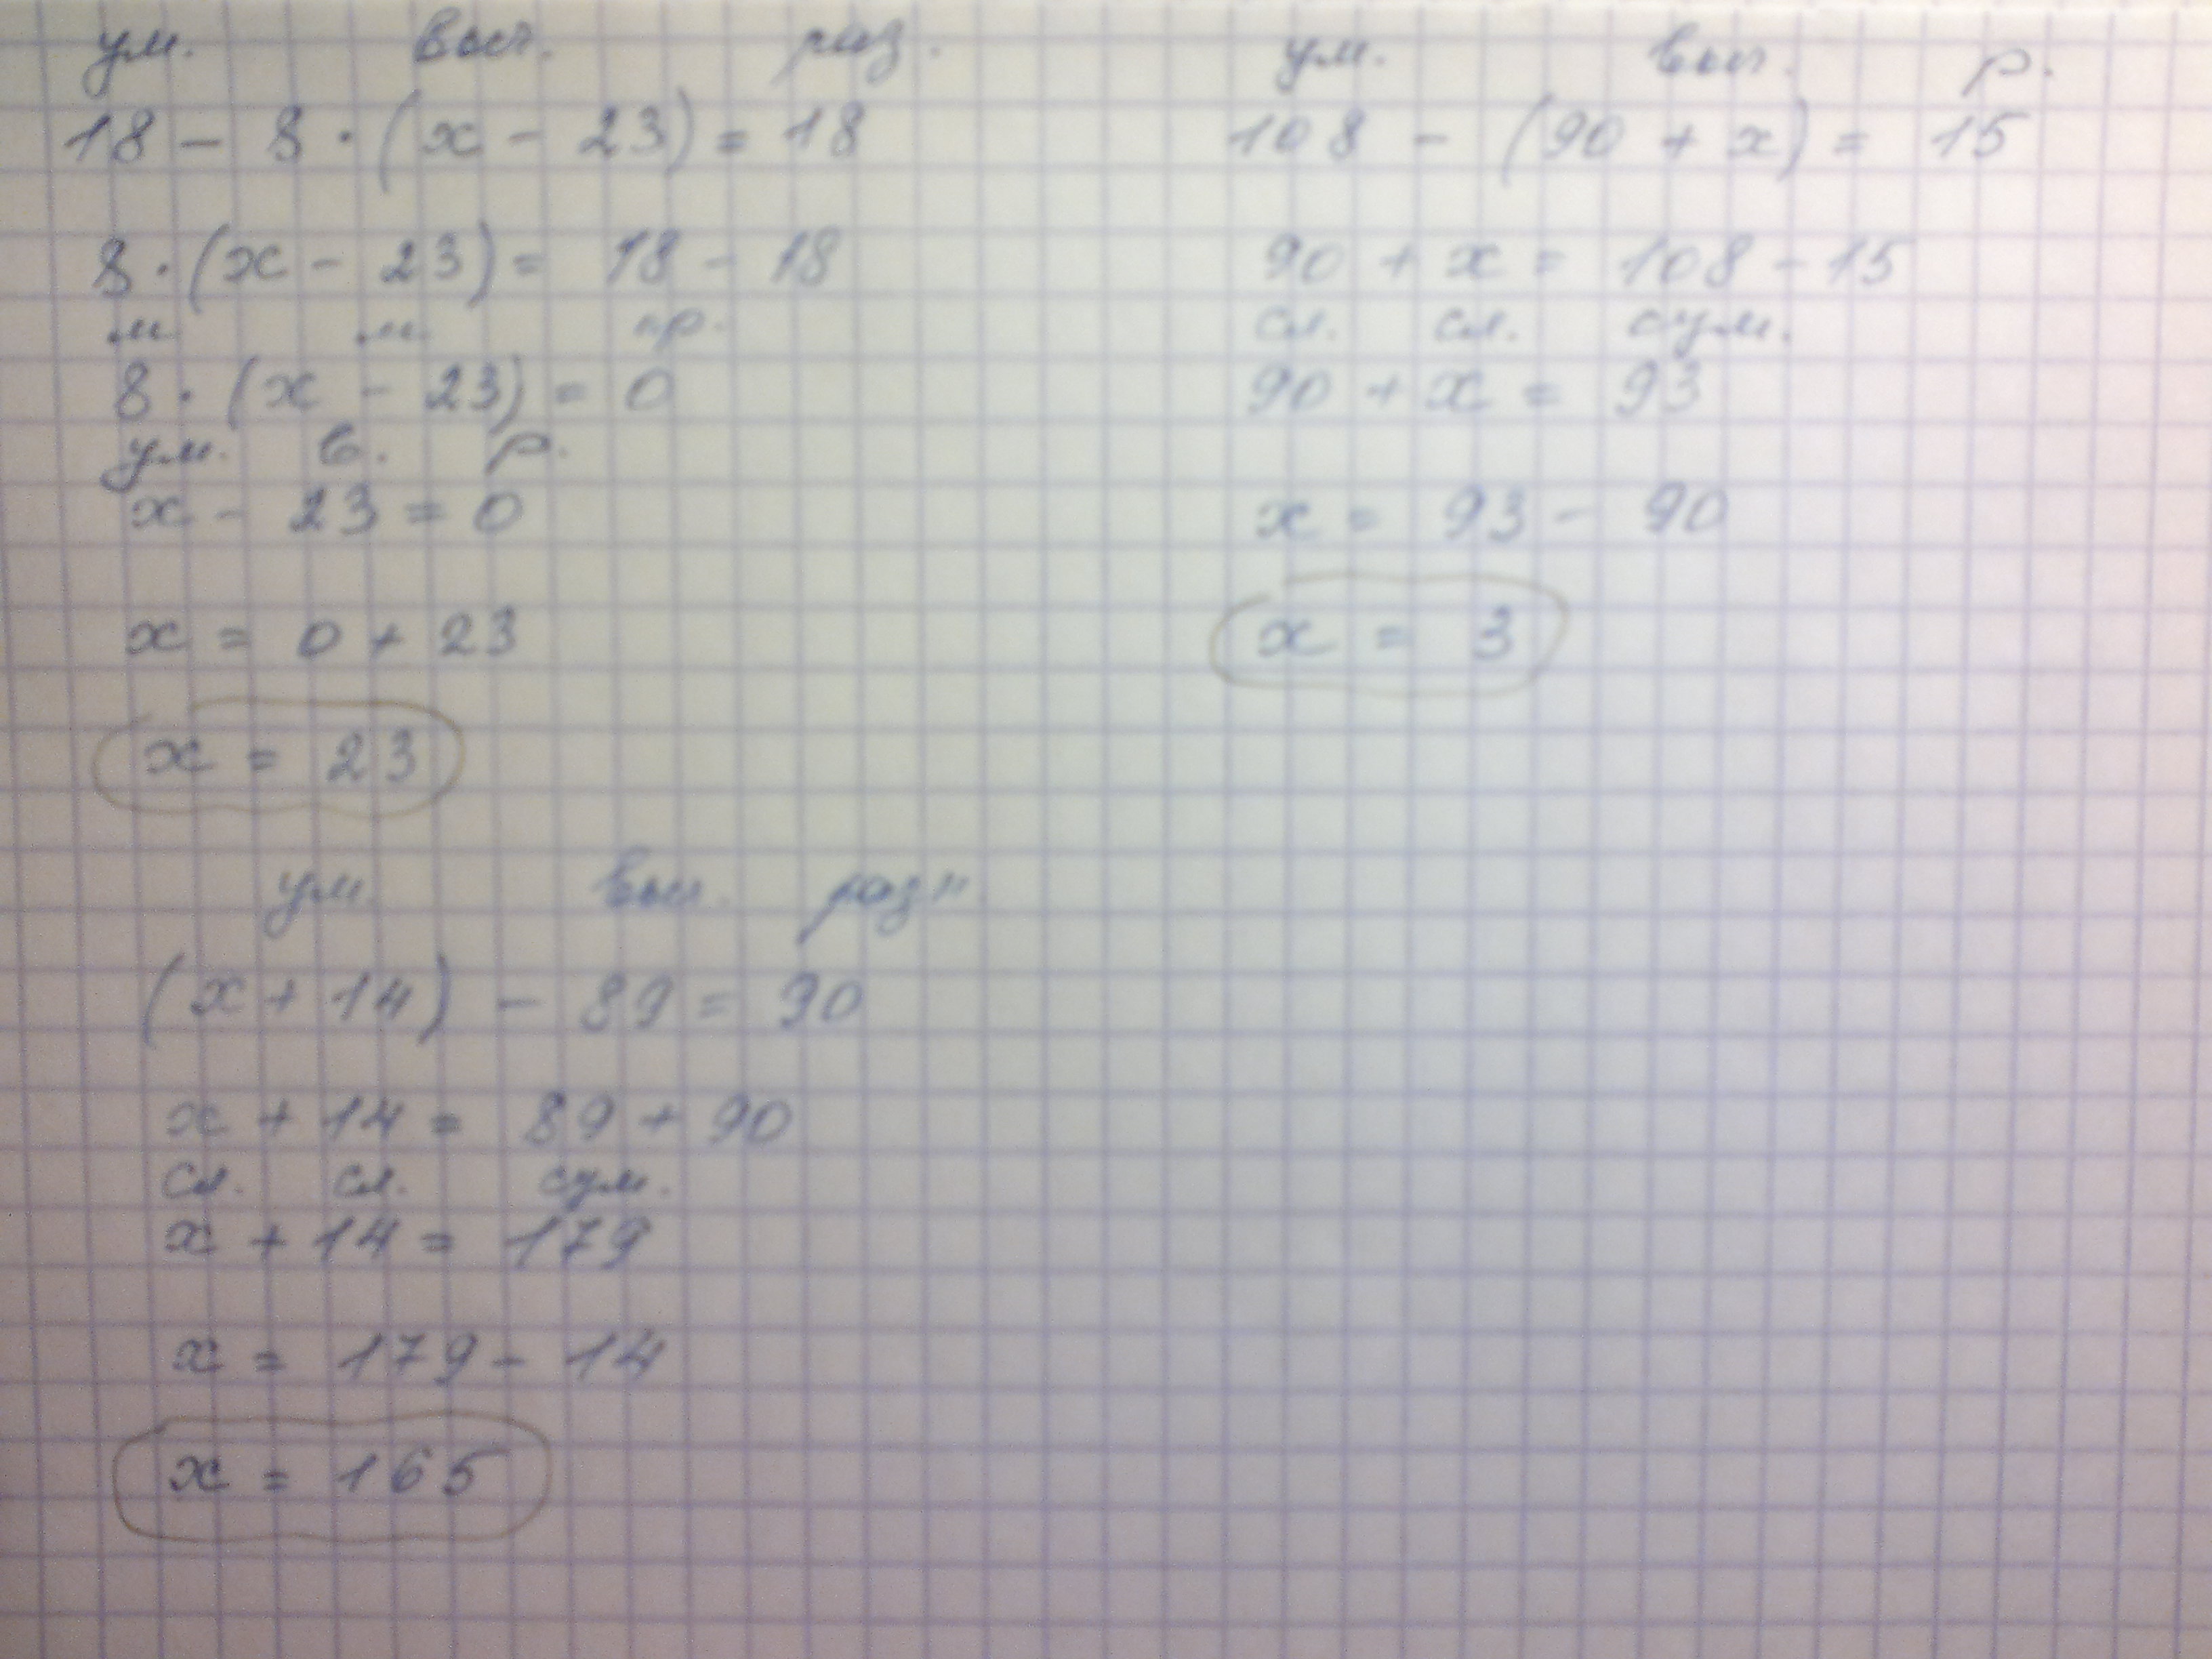 ум. выч. раз.
18 - 8 · (x - 23) = 18
8 · (x - 23) = 18 - 18
м м пр.
8 · (x - 23) = 0
ум. в. р.
x - 23 = 0
x = 0 + 23
x = 23
ум. выч. р.
108 - (90 + x) = 15
90 + x = 108 - 15
сл. сл. сум.
90 + x = 93
x = 93 - 90
x = 3
ум. выч. разн
(x + 14) - 89 = 90
x + 14 = 89 + 90
сл. сл. сум.
x + 14 = 179
x = 179 - 14
x = 165